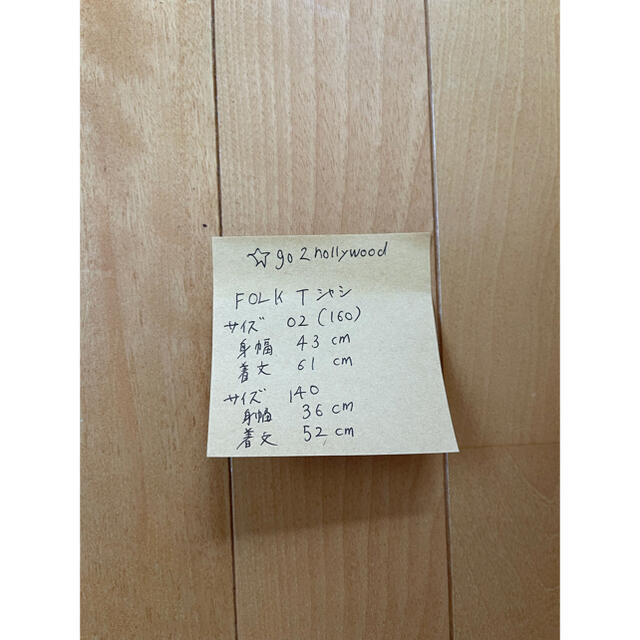 ☆ go 2 hollywood
FOLK Tシャシ
サイズ 02 (160)
身幅 43 cm
着丈 61 cm
サイズ 140
身幅 36 cm
着丈 52 cm